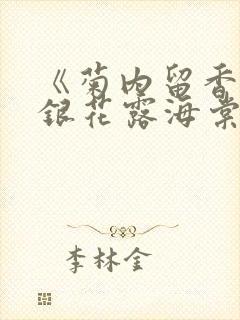 《菊内留香
银花露海棠
李林金